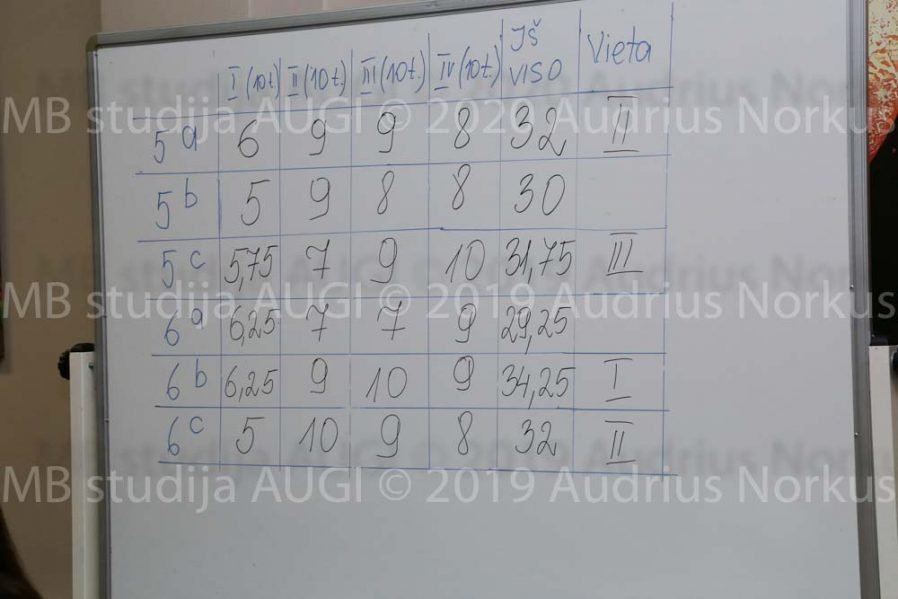 I (10t.) II (10t.) III (10t.) IV (10t.) IŠ VISO Vieta
5a 6 9 9 8 32 II
5b 5 9 8 8 30
5c 5,75 7 9 10 31,75 III
6a 6,25 7 7 9 29,25
6b 6,25 9 10 9 34,25 I
6c 5 10 9 8 32 II
MB studija AUGI © 2020 Audrius Norkus
MB studija AUGI © 2019 Audrius Norkus
MB studija AUGI © 2019 Audrius Norkus